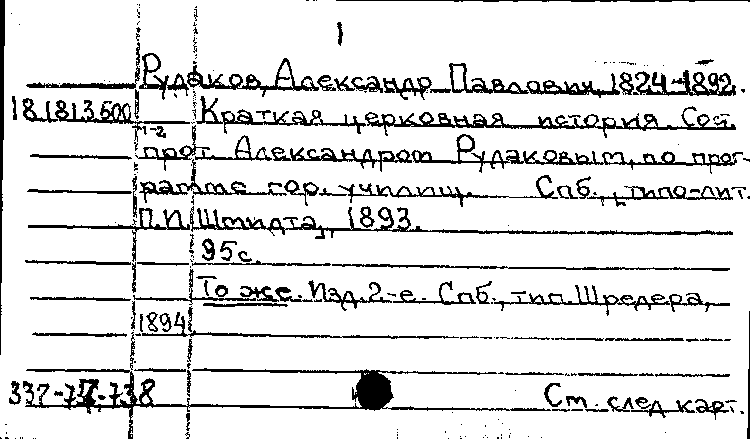 1
Рудаков, Александр Павлович, 1824-1892.
18.181.3.600 Краткая церковная история. Сост.
1-2
прот. Александром Рудаковым, по прог-
рамме гор. училищ. Спб., [типо-лит.
П.П. Шмидта], 1893.
95с.
То же. Изд. 2-е. Спб., тип. Шредера,
1894.
Ст. след карт.